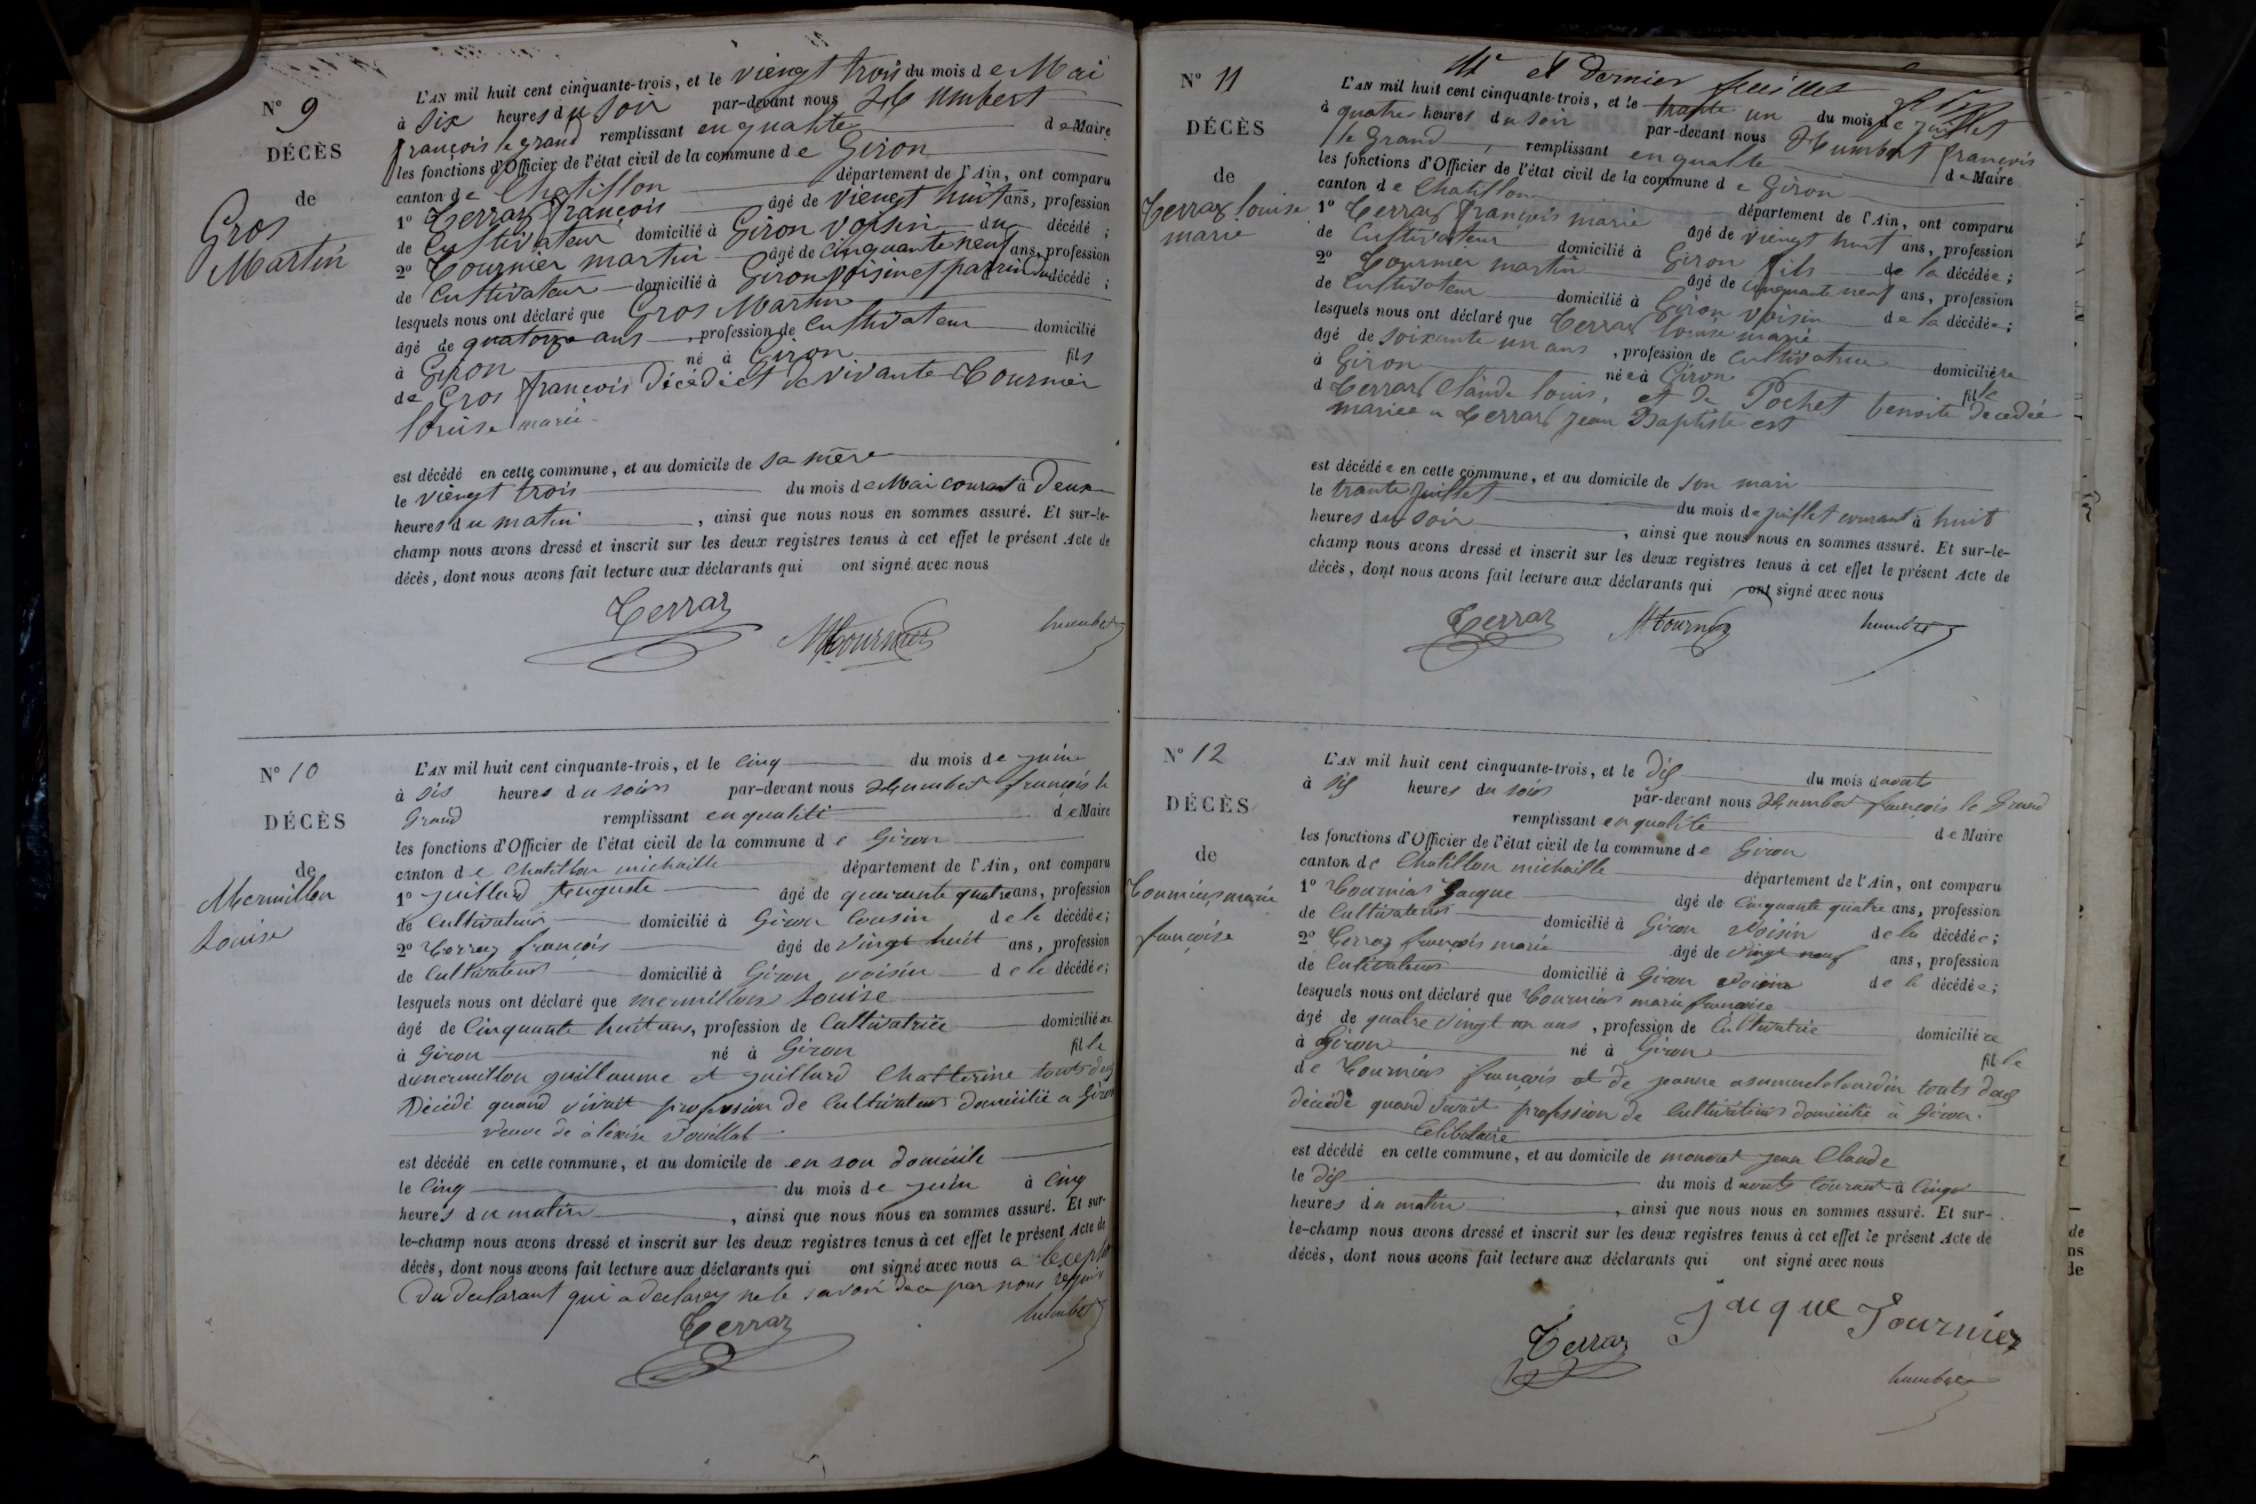 N° 9
DÉCÈS
de
Gros
Martin
L'AN mil huit cent cinquante-trois, et le viengt trois du mois de Mai
à six heures du soir par-devant nous Humbert
françois le grand remplissant en qualité de Maire
les fonctions d'Officier de l'état civil de la commune de Giron
canton de Chatillon département de l'Ain, ont comparu
1° Terraz françois âgé de viengt huit ans, profession
de Cultivateur domicilié à Giron voisin du décédé ;
2° Tournier martin âgé de cinquante neuf ans, profession
de Cultivateur domicilié à Giron voisin et parrin du décédé ;
lesquels nous ont déclaré que Gros Martin
âgé de quatorze ans , profession de Cultivateur domicilié
à Giron né à Giron fils
de Gros françois Décédé et de vivante Tournier
louise marie
est décédé en cette commune, et au domicile de sa mère
le viengt trois du mois de Mai courant à Deux
heures du matin , ainsi que nous nous en sommes assuré. Et sur-le-
champ nous avons dressé et inscrit sur les deux registres tenus à cet effet le présent Acte de
décès, dont nous avons fait lecture aux déclarants qui ont signé avec nous
Terraz
M Tournier
humbert
N° 10
DÉCÈS
de
Mermillon
Louise
L'AN mil huit cent cinquante-trois, et le Cinq du mois de juin
à sis heures du soir par-devant nous Humbert françois le
Grand remplissant en qualité de Maire
les fonctions d'Officier de l'état civil de la commune de Giron
canton de Chatillon michaille département de l'Ain, ont comparu
1° juillard auguste âgé de quarante quatre ans, profession
de Cultivateur domicilié à Giron Cousin de la décédée ;
2° Terraz françois âgé de vingt huit ans, profession
de Cultivateur domicilié à Giron voisin de la décédée ;
lesquels nous ont déclaré que mermillon Louise
âgé de Cinquante huit ans, profession de Cultivatrice domicilié
à Giron né à Giron fille
de mermillon guillaume et juillard Chatterine touts deux
Décédé quand vivait profession de Cultivateur domicilié a Giron
veuve de
est décédé en cette commune, et au domicile de en son domicile
le Cinq du mois de juin à Cinq
heures du matin , ainsi que nous nous en sommes assuré. Et sur-
le-champ nous avons dressé et inscrit sur les deux registres tenus à cet effet le présent Acte de
décès, dont nous avons fait lecture aux déclarants qui ont signé avec nous a
Du declarant qui a declarez ne le savoir de ce par nous
Terraz
humbert
N° 11
DÉCÈS
de
Terraz louise
marie
et Dernier feuillet
L'AN mil huit cent cinquante-trois, et le trante un du mois de juillet
à quatre heures du soir par-devant nous Humbert françois
le Grand , remplissant en qualité de Maire
les fonctions d'Officier de l'état civil de la commune de Giron
canton de Chatillon département de l'Ain, ont comparu
1° Terraz françois marie âgé de viengt huit ans, profession
de Cultivateur domicilié à Giron fils de la décédée ;
2° Tournier martin âgé de cinquante neuf ans, profession
de Cultivateur domicilié à Giron voisin de la décédée ;
lesquels nous ont déclaré que Terraz louise marie
âgé de soixante un ans , profession de Cultivatrice domiciliée
à Giron née à Giron fille
d Terraz Claude louis, et de Pochet benoite décedée
mariée a Terraz jean Baptiste est
est décédée en cette commune, et au domicile de son mari
le trante juillet du mois de juillet courant à huit
heures du soir , ainsi que nous nous en sommes assuré. Et sur-le-
champ nous avons dressé et inscrit sur les deux registres tenus à cet effet le présent Acte de
décès, dont nous avons fait lecture aux déclarants qui ont signé avec nous
Terraz
M Tournier
humbert
N° 12
DÉCÈS
de
Tournier marie
françoise
L'AN mil huit cent cinquante-trois, et le dis du mois d aouts
à sis heures du soir par-devant nous Humbert françois le Grand
remplissant en qualité de Maire
les fonctions d'Officier de l'état civil de la commune de Giron
canton de Chatillon michaille département de l'Ain, ont comparu
1° Tournier Jacque âgé de Cinquante quatre ans, profession
de Cultivateur domicilié à Giron Voisin de la décédée ;
2° Terraz françois marie âgé de vingt neuf ans, profession
de Cultivateur domicilié à Giron voisin de la décédée ;
lesquels nous ont déclaré que Tournier marie françoise
âgé de quatre vingt un ans , profession de Cultivatrice domicilié
à Giron né à Giron fille
de Tournier françois et de jeanne touts deux
Décédé quand vivait profession de Cultivateur domicilié a Giron.
Celibataire
est décédé en cette commune, et au domicile de monnet jean Claude
le dis du mois d aouts Courant à Cinq
heures du matin , ainsi que nous nous en sommes assuré. Et sur-
le-champ nous avons dressé et inscrit sur les deux registres tenus à cet effet le présent Acte de
décès, dont nous avons fait lecture aux déclarants qui ont signé avec nous
jacque Tournier
Terraz
humbert